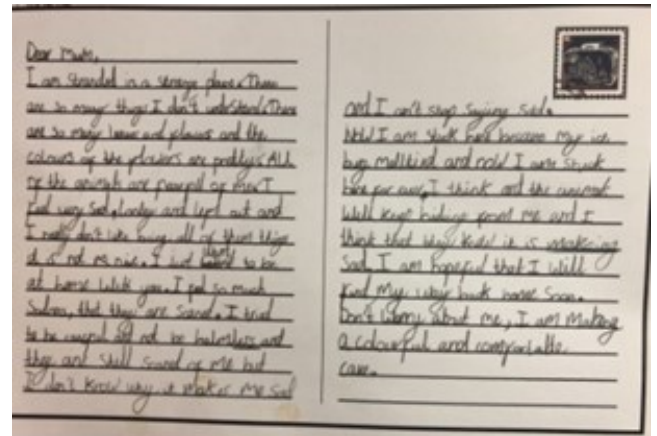 Dear Mum,
I am stranded in a strange place. There
are so many things I don't understand. There
are so many leaves and flowers and the
colours of the flowers are pretty. All
of the animals are of me. I
feel very sad, lonley and left out and
I really don't like being all of them things
it is not nice. I just want to be
at home with you. I feel so much
that they are scared. I tried
to be careful and not be and
they are still scared of me but
I don't know why it makes me sad
and I can't stop saying sad.
Now I am stuck here because my ice
burg and now I am stuck
here for ever. I think and the animals
will kept hiding from me and I
think that it is makeing
sad. I am hopeful that I will
find my way back home soon.
Don't worry about me, I am making
a colourful and comfortable
cave.